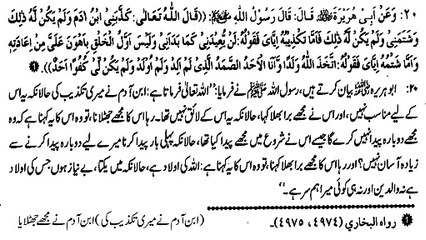 ۲۰: وَعَنْ أَبِي هُرَيْرَةَ ﷺ قَالَ: قَالَ رَسُولُ اللهِ ﷺ: ((قَالَ اللهُ تَعَالَى: كَذَّبَنِي ابْنُ آدَمَ وَلَمْ يَكُنْ لَهُ ذٰلِكَ
وَشَتَمَنِي وَلَمْ يَكُنْ لَهُ ذٰلِكَ فَأَمَّا تَكْذِيبُهُ إِيَّايَ فَقَوْلُهُ: لَنْ يُعِيدَنِي كَمَا بَدَأَنِي وَلَيْسَ أَوَّلُ الْخَلْقِ بِأَهْوَنَ عَلَيَّ مِنْ إِعَادَتِهِ
وَأَمَّا شَتْمُهُ إِيَّايَ فَقَوْلُهُ: اتَّخَذَ اللهُ وَلَدًا وَأَنَا الْأَحَدُ الصَّمَدُ الَّذِي لَمْ أَلِدْ وَلَمْ أُولَدْ وَلَمْ يَكُنْ لِي كُفُوًا أَحَدٌ)).
۲۰: ابو ہریرہ بیان کرتے ہیں، رسول اللہ ﷺ نے فرمایا: ”اللہ تعالیٰ فرماتا ہے: ابن آدم نے میری تکذیب کی حالانکہ یہ اس
کے لیے مناسب نہیں، اور اس نے مجھے برا بھلا کہا، حالانکہ یہ اس کے لائق نہیں تھا۔ رہا اس کا مجھے جھٹلانا، تو وہ اس کا یہ کہنا ہے کہ وہ
مجھے دوبارہ پیدا نہیں کرے گا جیسے اس نے شروع میں مجھے پیدا کیا تھا، حالانکہ پہلی بار پیدا کرنا میرے لیے دوبارہ پیدا کرنے سے
زیادہ آسان نہیں؟ اور رہا اس کا مجھے برا بھلا کہنا، تو وہ اس کا یہ کہنا ہے: اللہ کی اولاد ہے، حالانکہ میں یکتا، بے نیاز ہوں جس کی اولاد
ہے نہ والدین اور نہ ہی کوئی میرا ہم سر ہے۔“
رواہ البخاري (٤٩٧٤، ٤٩٧٥)۔ (ابن آدم نے میری تکذیب کی) ابن آدم نے مجھے جھٹلایا